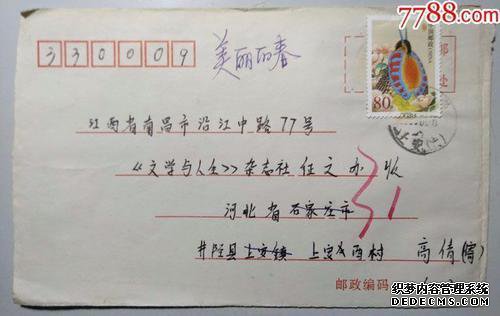 7788.com
330009
美丽的春
中国邮政
80
江西省南昌市沿江中路77号
《文学与人生》杂志社 征文办 收
31
河北省石家庄市
井陉县上安镇 上安西村 高倩(寄)
邮政编码
织梦内容管理系统
DEDECMS.COM